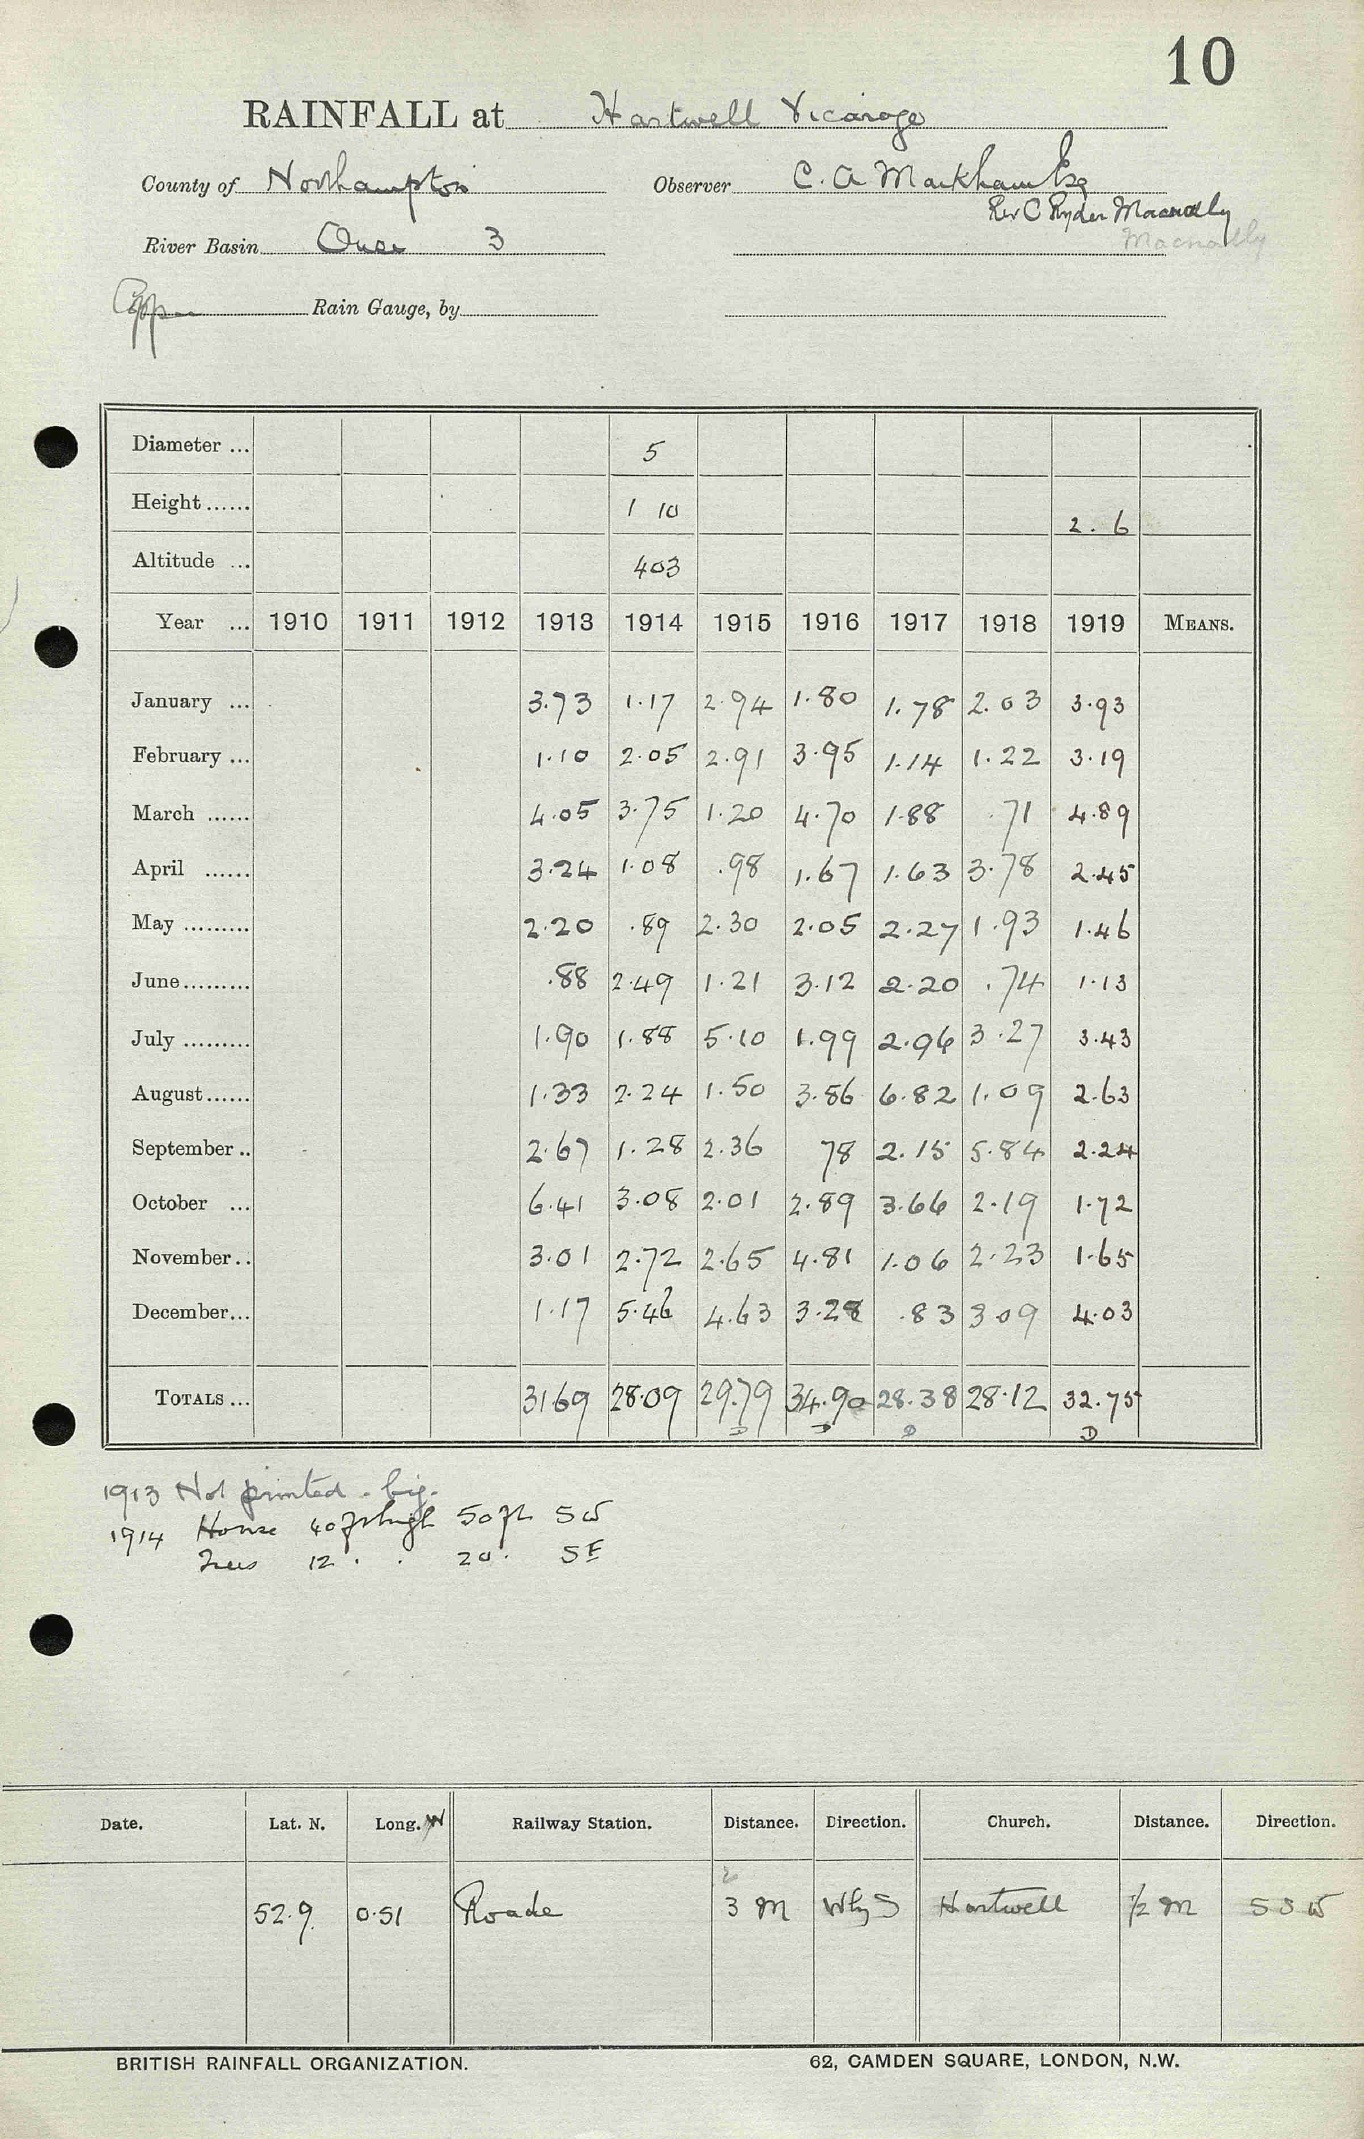 10
RAINFALL at Hartwell Vicarage
County of Northampton Observer C. A Markham Esq
Rev C Ryder Macnally
River Basin Ouse 3 Macnally
Copper Rain Gauge, by
Diameter ... 5
Height ...... 1 10 2. 6
Altitude ... 403
Year ... 1910 1911 1912 1913 1914 1915 1916 1917 1918 1919 MEANS.
January ... 3.73 1.17 2.94 1.80 1.78 2.03 3.93
February ... 1.10 2.05 2.91 3.95 1.14 1.22 3.19
March ...... 4.05 3.75 1.20 4.70 1.88 .71 4.89
April ...... 3.24 1.08 .98 1.67 1.63 3.78 2.45
May ......... 2.20 .89 2.30 2.05 2.27 1.93 1.46
June ......... .88 2.49 1.21 3.12 2.20 .74 1.13
July ......... 1.90 1.88 5.10 1.99 2.96 3.27 3.43
August ...... 1.33 2.24 1.50 3.86 6.82 1.09 2.63
September .. 2.67 1.28 2.36 78 2.15 5.84 2.24
October ... 6.41 3.08 2.01 2.89 3.66 2.19 1.72
November .. 3.01 2.72 2.65 4.81 1.06 2.23 1.65
December ... 1.17 5.46 4.63 3.28 .83 3 09 4.03
TOTALS ... 31 69 28.09 29.79 34.90 28.38 28.12 32.75
D D D D
1913 Not printed . big.
1914 House 40 ft high 50 ft SW
Trees 12 " " 20 " SE
Date. Lat. N. Long. W Railway Station. Distance. Direction. Church. Distance. Direction.
2
52.9 0.51 Roade 3 M W by S Hartwell 1/2 M S S W
BRITISH RAINFALL ORGANIZATION. 62, CAMDEN SQUARE, LONDON, N.W.